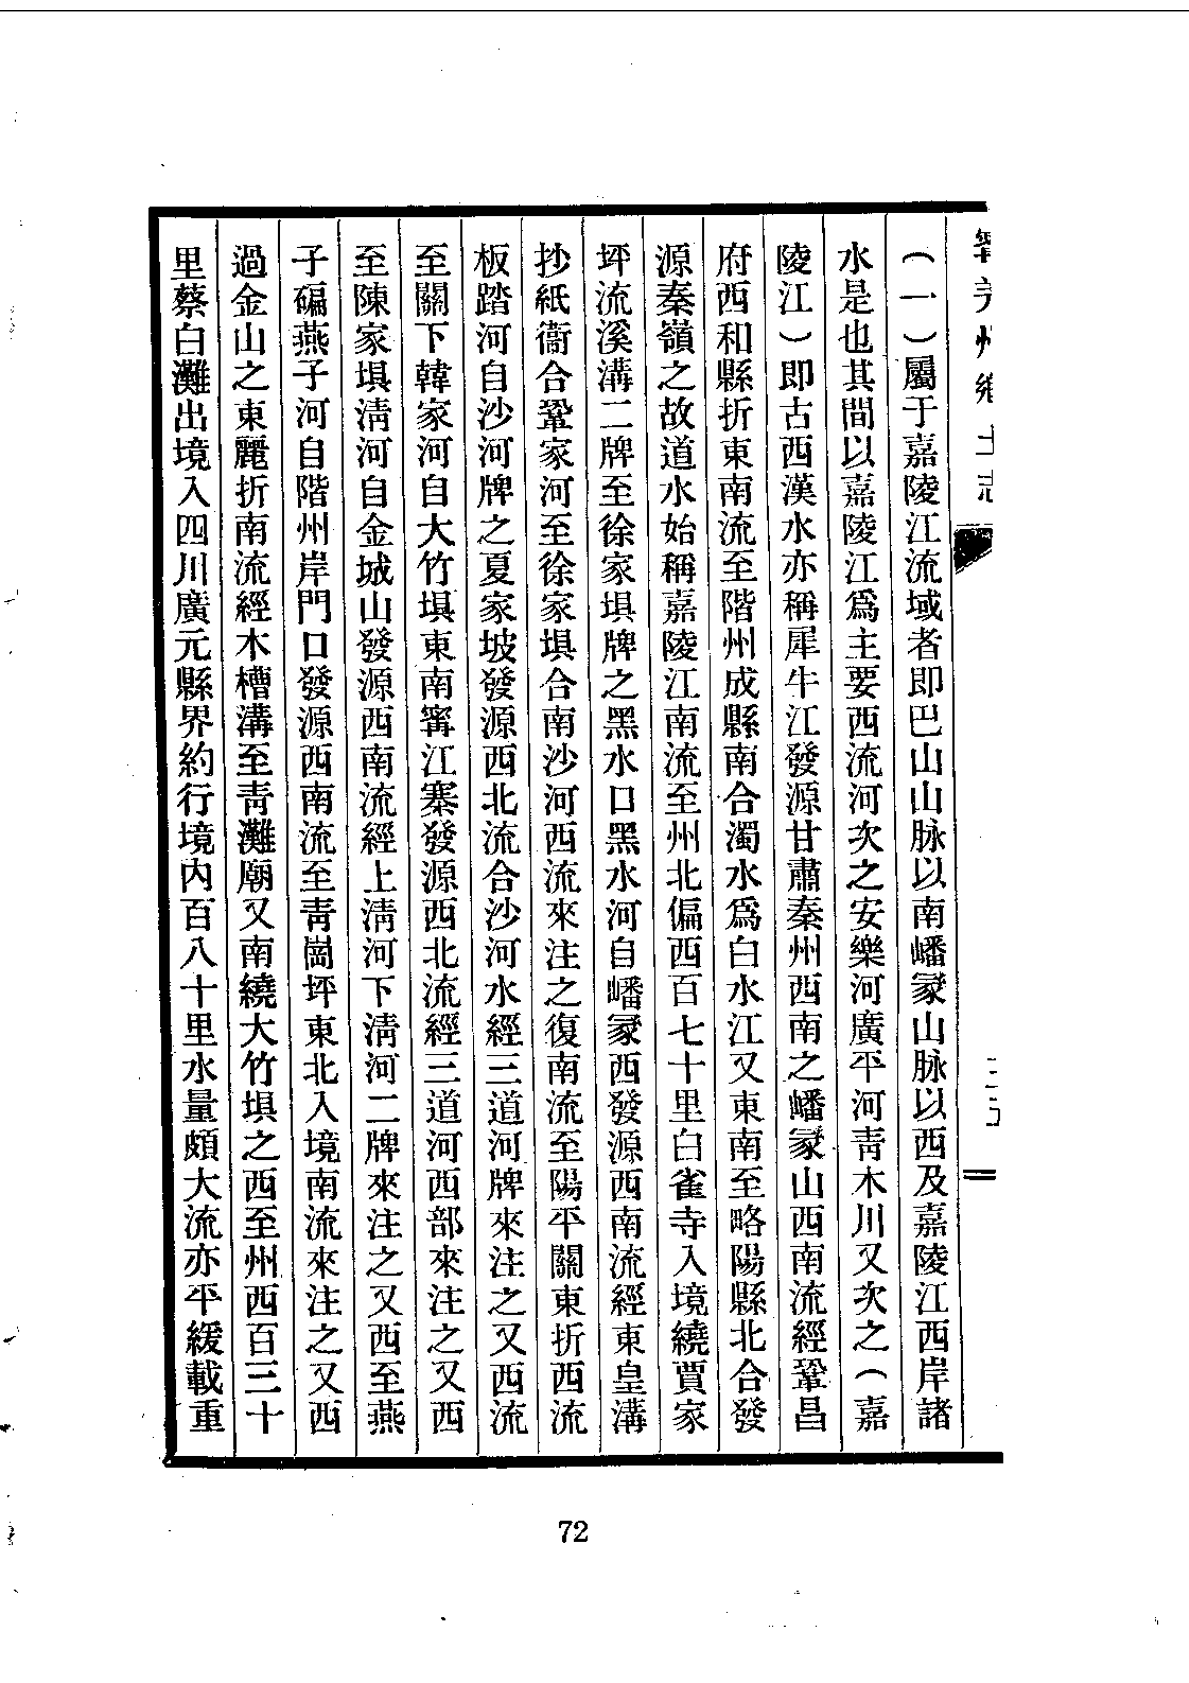 寧羌州鄕土志
（一）屬于嘉陵江流域者即巴山山脉以南嶓冢山脉以西及嘉陵江西岸諸
水是也其間以嘉陵江爲主要西流河次之安樂河廣平河靑木川又次之（嘉
陵江）即古西漢水亦稱犀牛江發源甘肅秦州西南之嶓冢山西南流經鞏昌
府西和縣折東南流至階州成縣南合濁水爲白水江又東南至略陽縣北合發
源秦嶺之故道水始稱嘉陵江南流至州北偏西百七十里白雀寺入境繞賈家
坪流溪溝二牌至徐家埧牌之黑水口黑水河自嶓冢西發源西南流經東皇溝
抄紙衞合鞏家河至徐家埧合南沙河西流來注之復南流至陽平關東折西流
板踏河自沙河牌之夏家坡發源西北流合沙河水經三道河牌來注之又西流
至關下韓家河自大竹埧東南寗江寨發源西北流經三道河西部來注之又西
至陳家埧淸河自金城山發源西南流經上淸河下淸河二牌來注之又西至燕
子碥燕子河自階州岸門口發源西南流至靑崗坪東北入境南流來注之又西
過金山之東麗折南流經木槽溝至靑灘廟又南繞大竹埧之西至州西百三十
里蔡白灘出境入四川廣元縣界約行境内百八十里水量頗大流亦平緩載重
72